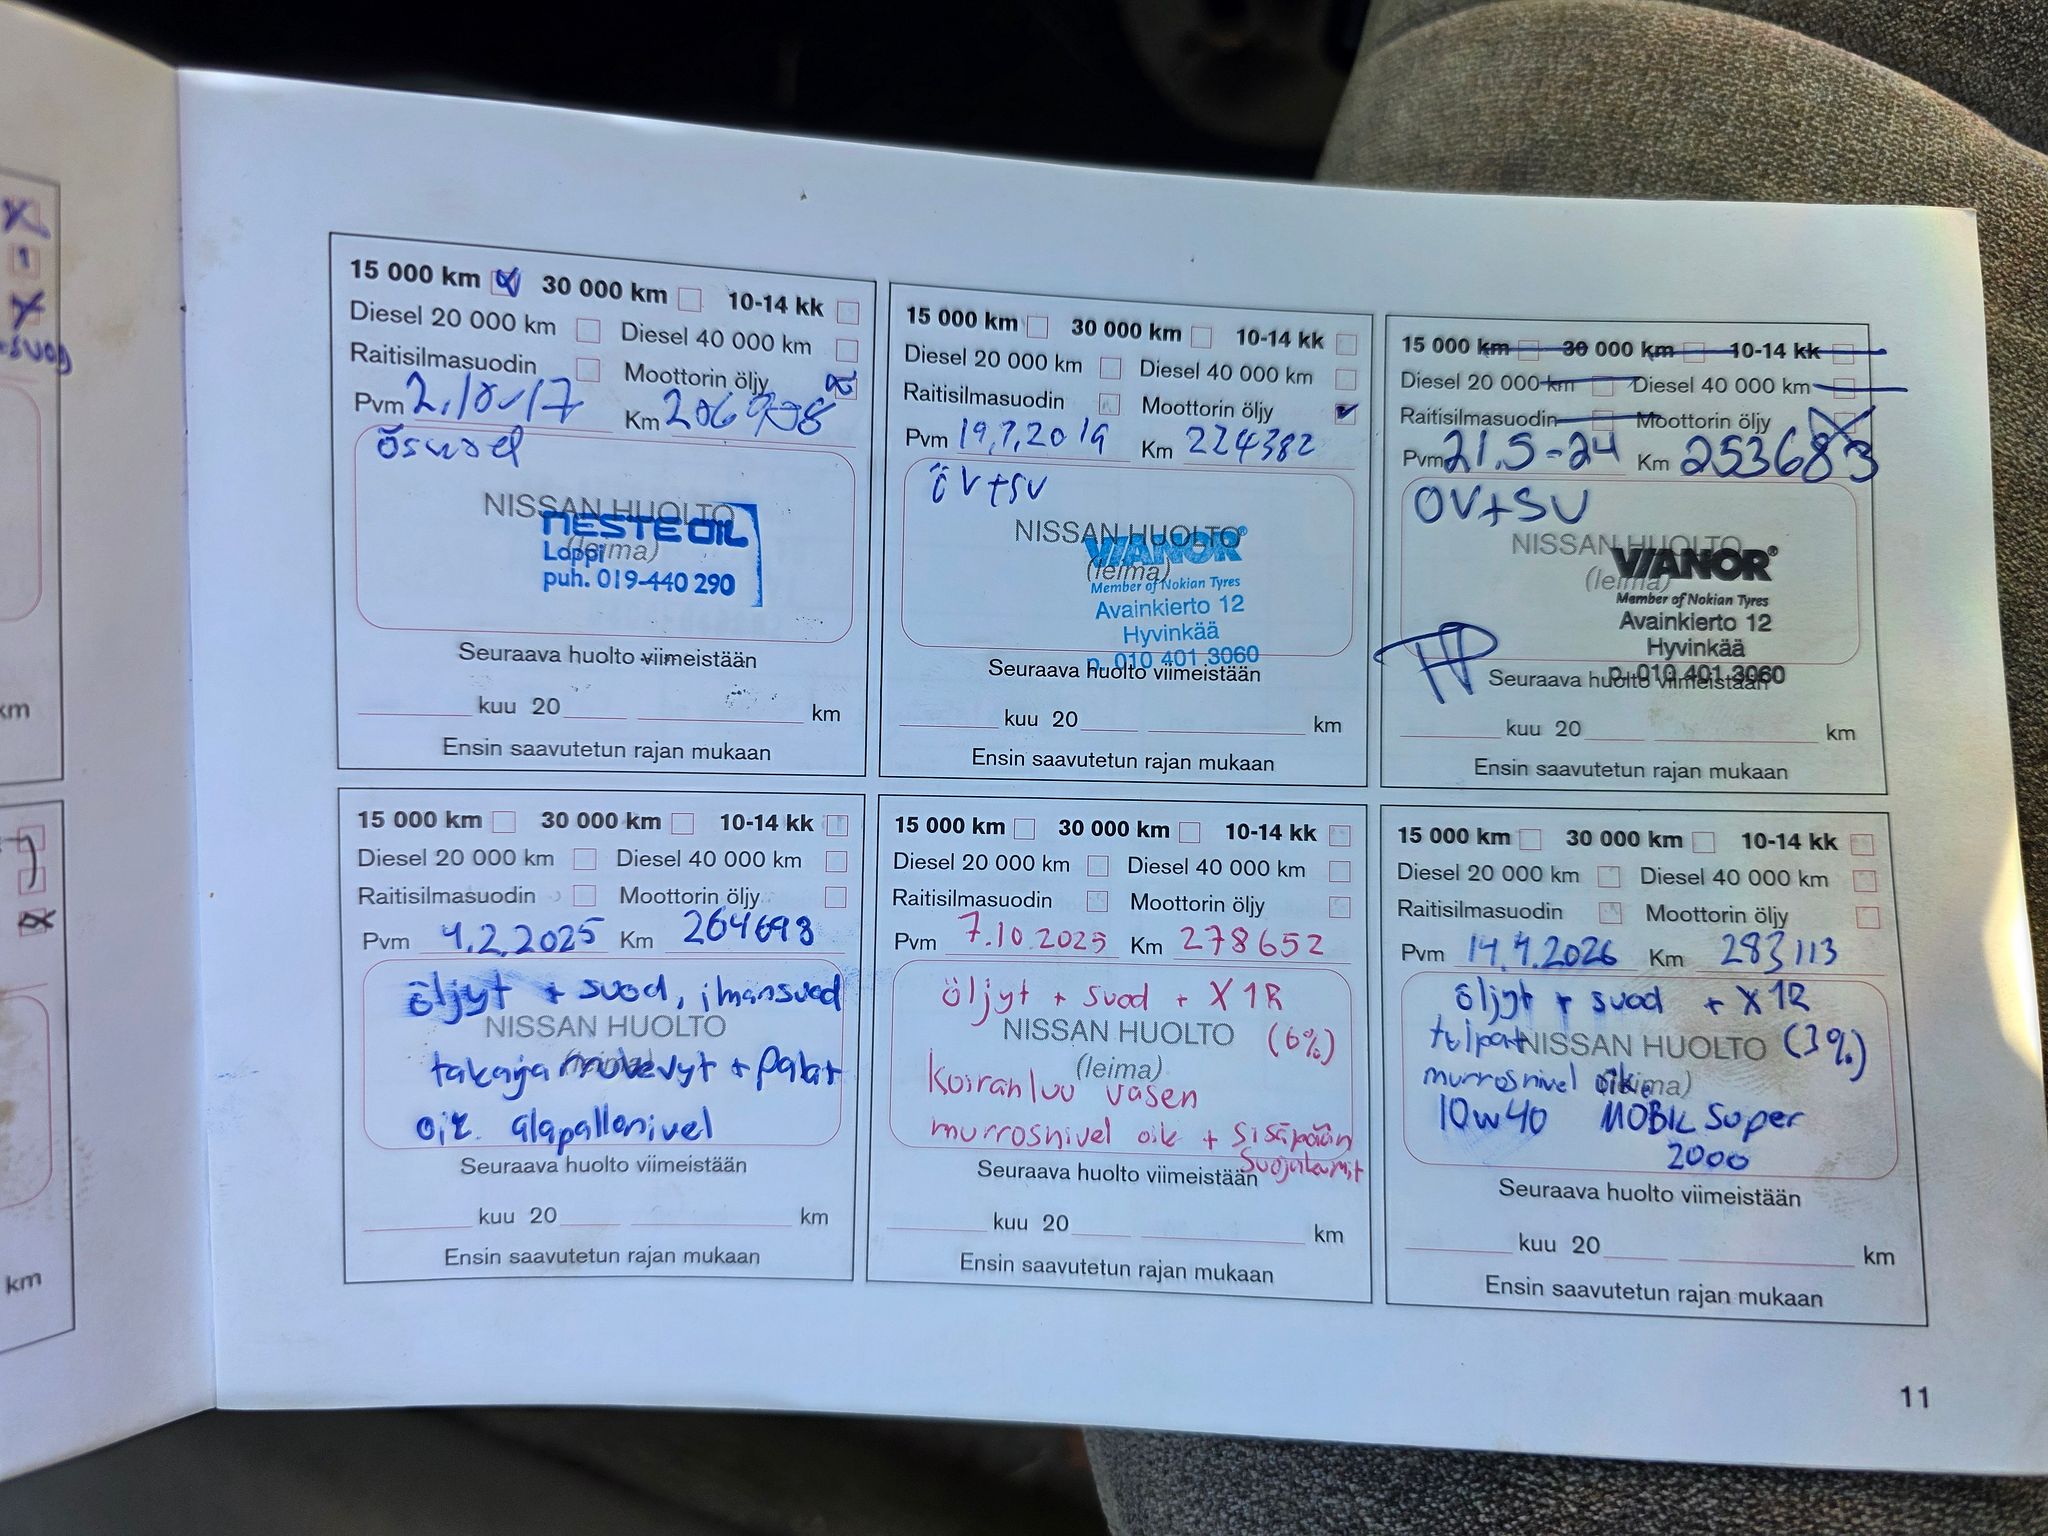 15 000 km 30 000 km 10-14 kk
Diesel 20 000 km Diesel 40 000 km
Raitisilmasuodin Moottorin öljy
Pvm 2.10-17 Km
NISSAN HUOLTO
(leima)
NESTE OIL
Loppi
puh. 019-440 290
Seuraava huolto viimeistään
kuu 20 km
Ensin saavutetun rajan mukaan
15 000 km 30 000 km 10-14 kk
Diesel 20 000 km Diesel 40 000 km
Raitisilmasuodin Moottorin öljy
Pvm 19.7.2019 Km 224382
ÖV+SV
NISSAN HUOLTO
(leima)
VIANOR
Member of Nokian Tyres
Avainkierto 12
Hyvinkää
p. 010 401 3060
Seuraava huolto viimeistään
kuu 20 km
Ensin saavutetun rajan mukaan
15 000 km 30 000 km 10-14 kk
Diesel 20 000 km Diesel 40 000 km
Raitisilmasuodin Moottorin öljy
Pvm 21.5-24 Km 253683
OV+SV
NISSAN HUOLTO
(leima)
VIANOR
Member of Nokian Tyres
Avainkierto 12
Hyvinkää
p. 010 401 3060
Seuraava huolto viimeistään
kuu 20 km
Ensin saavutetun rajan mukaan
15 000 km 30 000 km 10-14 kk
Diesel 20 000 km Diesel 40 000 km
Raitisilmasuodin Moottorin öljy
Pvm 4.2.2025 Km 264693
öljyt + suod, ilmansuod
NISSAN HUOLTO
takajarrulevyt + palat
oik. alapallonivel
Seuraava huolto viimeistään
kuu 20 km
Ensin saavutetun rajan mukaan
15 000 km 30 000 km 10-14 kk
Diesel 20 000 km Diesel 40 000 km
Raitisilmasuodin Moottorin öljy
Pvm 7.10.2025 Km 278652
öljyt + suod + X1R
NISSAN HUOLTO (6%)
(leima)
Koiranluu vasen
murrosnivel oik + sisäpään
suojakumit
Seuraava huolto viimeistään
kuu 20 km
Ensin saavutetun rajan mukaan
15 000 km 30 000 km 10-14 kk
Diesel 20 000 km Diesel 40 000 km
Raitisilmasuodin Moottorin öljy
Pvm 14.4.2026 Km 283113
öljyt + suod + X1R
tulpat NISSAN HUOLTO (3%)
murrosnivel oik.
10w40 MOBIL Super
2000
Seuraava huolto viimeistään
kuu 20 km
Ensin saavutetun rajan mukaan
11
km
km